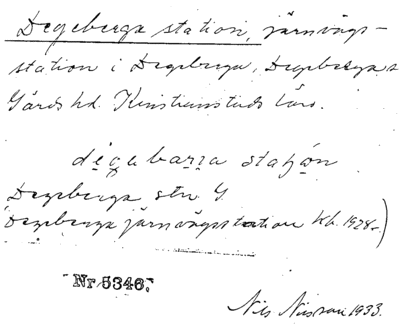 Degeberga station, järnvägs-
station i Degeberga, Degeberga s
Gärds hd. Kristianstads län.
degabarra stasjon
Degeberga stn G.
(Degeberga järnvägsstation Kb. 1928.)
Nr 5346.
Nils Nilsson 1933.